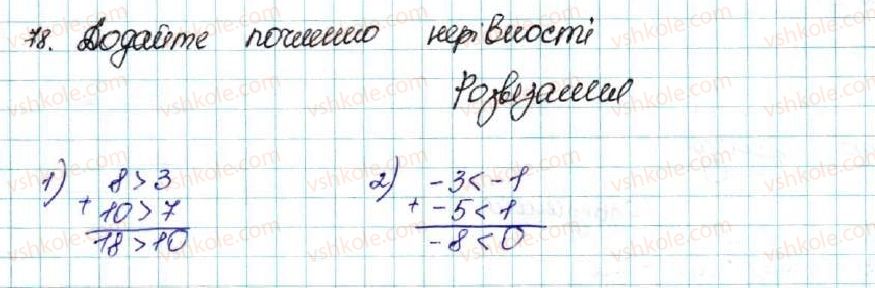 78. Додайте почленно нерівності
Розв'язання
1) 8 > 3
+ 10 > 7
18 > 10
2) -3 < -1
+ -5 < 1
-8 < 0
vshkole.com